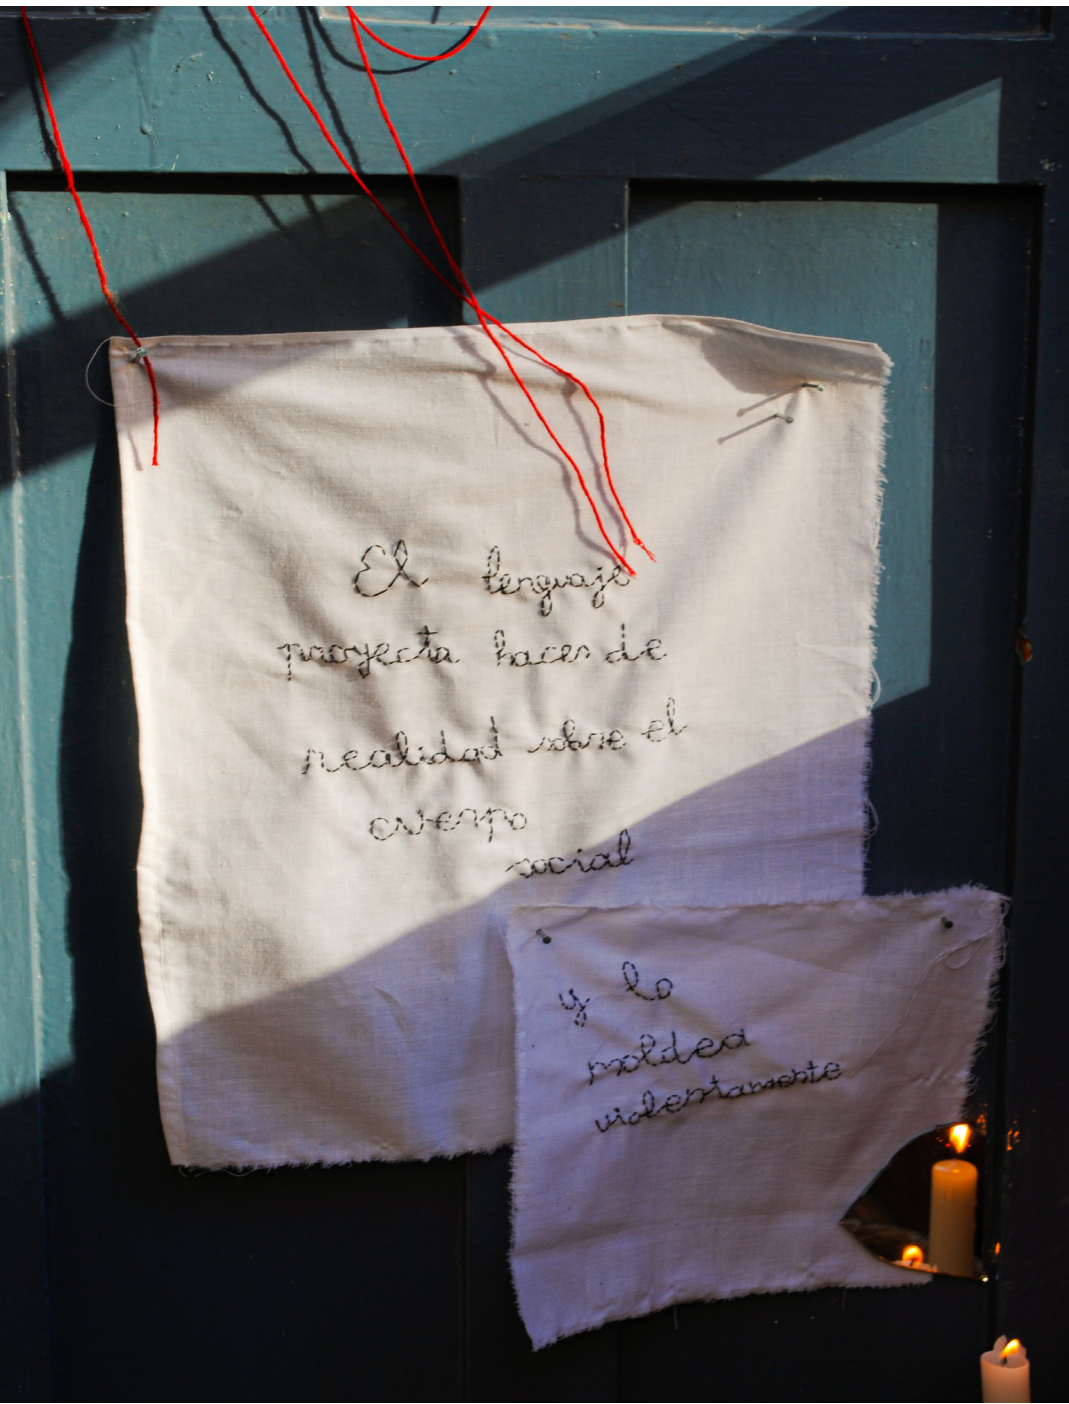 El lenguaje
proyecta haces de
realidad sobre el
cuerpo
social
y lo
moldea
violentamente